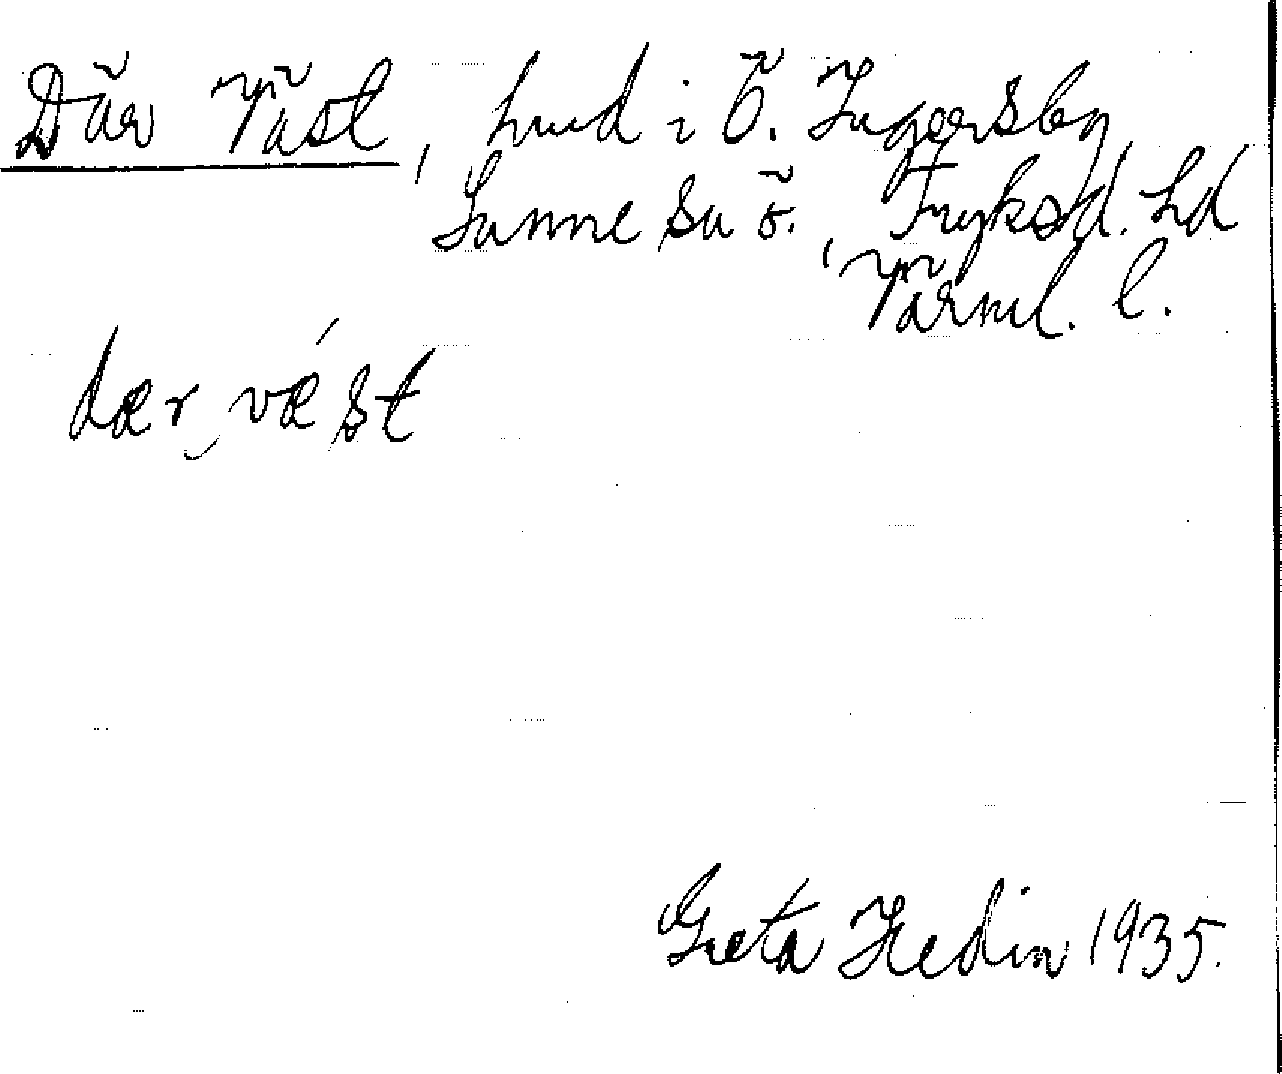 Där Väst, hmd i Ö. Ingersby,
Sunne sn ö., Fryksd. hd
Värml. l.
dær væ´st
Greta Hedin 1935.